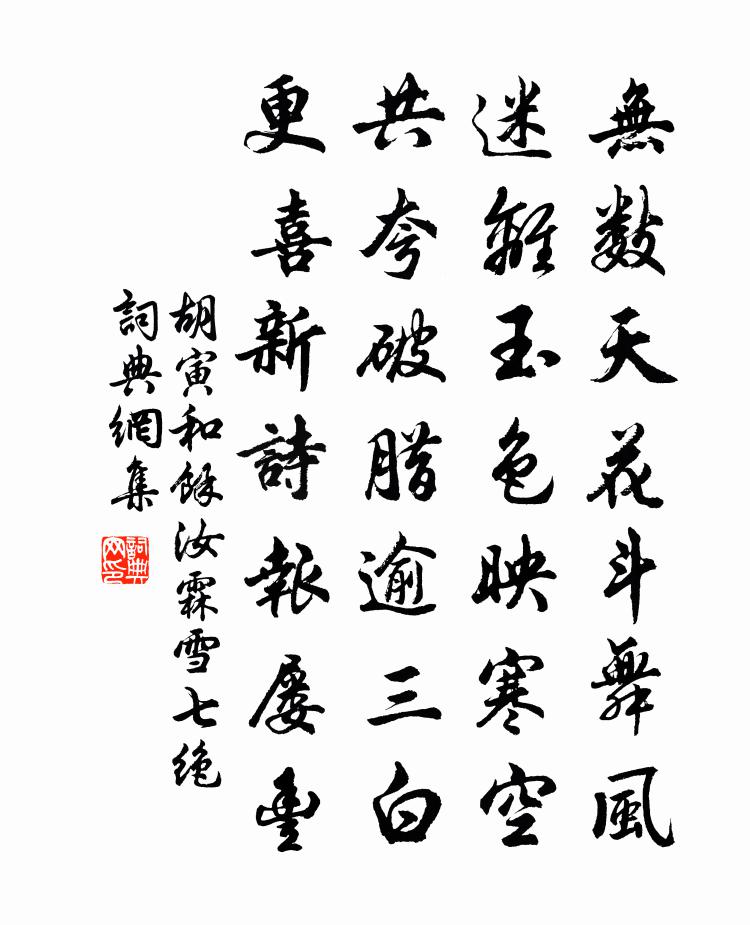 無数天花斗舞風
迷離玉色映寒空
共夸破腊逾三白
更喜新詩報屡豊
胡寅和餘汝霖雪七绝
詞典網集
詞典网印